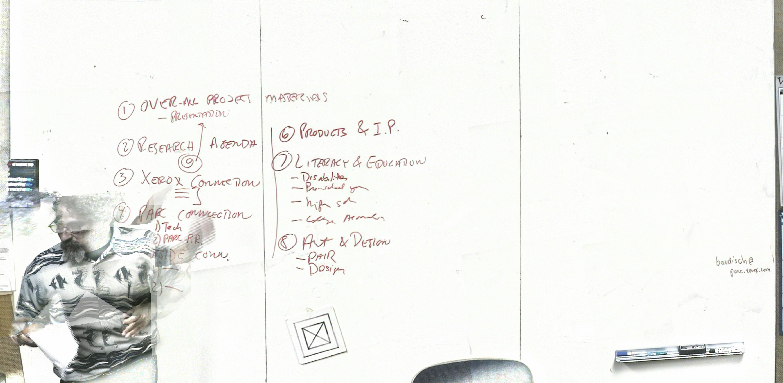 ① OVER-ALL PROJECT MATERIALS
— PRESENTATION
② RESEARCH AGENDA
⑨
③ XEROX CONNECTION
④ PARC CONNECTION
1) Tech
2) PARC P.R.
CONN.
2) —
⑥ PRODUCTS & I.P.
⑦ LITERACY & EDUCATION
— Disabilities
— high sch
— College
⑧ ART & DESIGN
— PAIR
— DESIGN